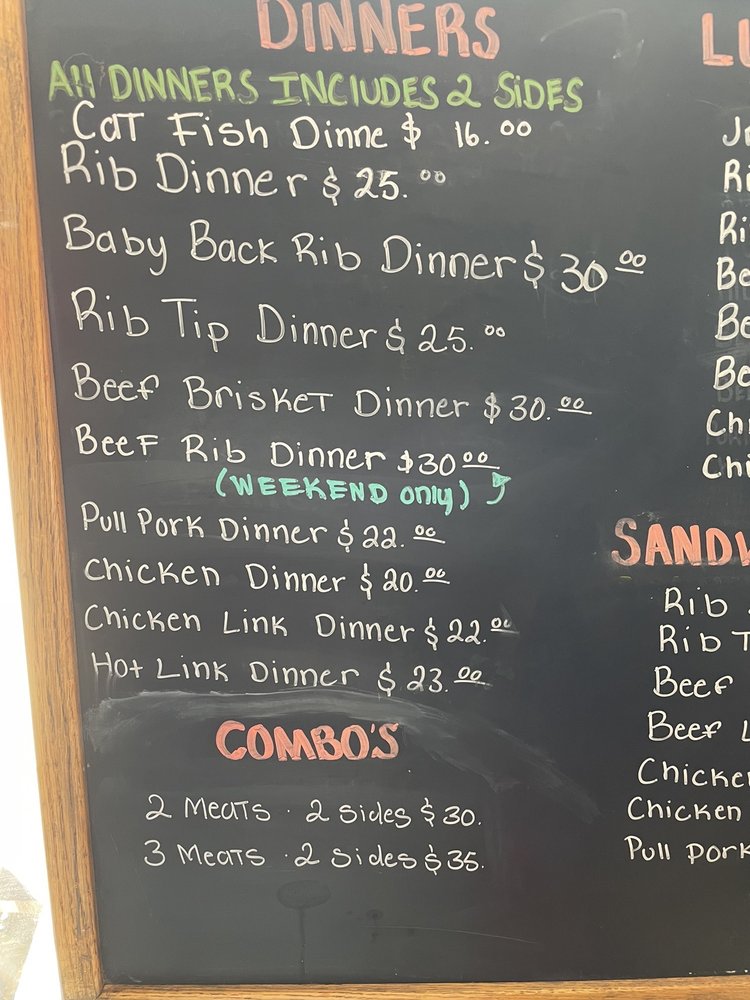 DINNERS
All DINNERS INCLUDES 2 SiDES
CaT Fish Dinne $ 16.00
Rib Dinner $ 25.00
Baby Back Rib Dinner $ 30 00
Rib Tip Dinner $ 25.00
Beef Brisket Dinner $ 30.00
BeeF Rib Dinner $30 00
(WEEKEND only)
Pull Pork Dinner $ 22.00
Chicken Dinner $ 20.00
Chicken Link Dinner $ 22.00
Hot Link Dinner $ 23.00
COMBO'S
2 Meats · 2 Sides $ 30.
3 Meats · 2 Sides $ 35.
Rib
Rib T
Beef
Beef L
Chicken
Pull Pork